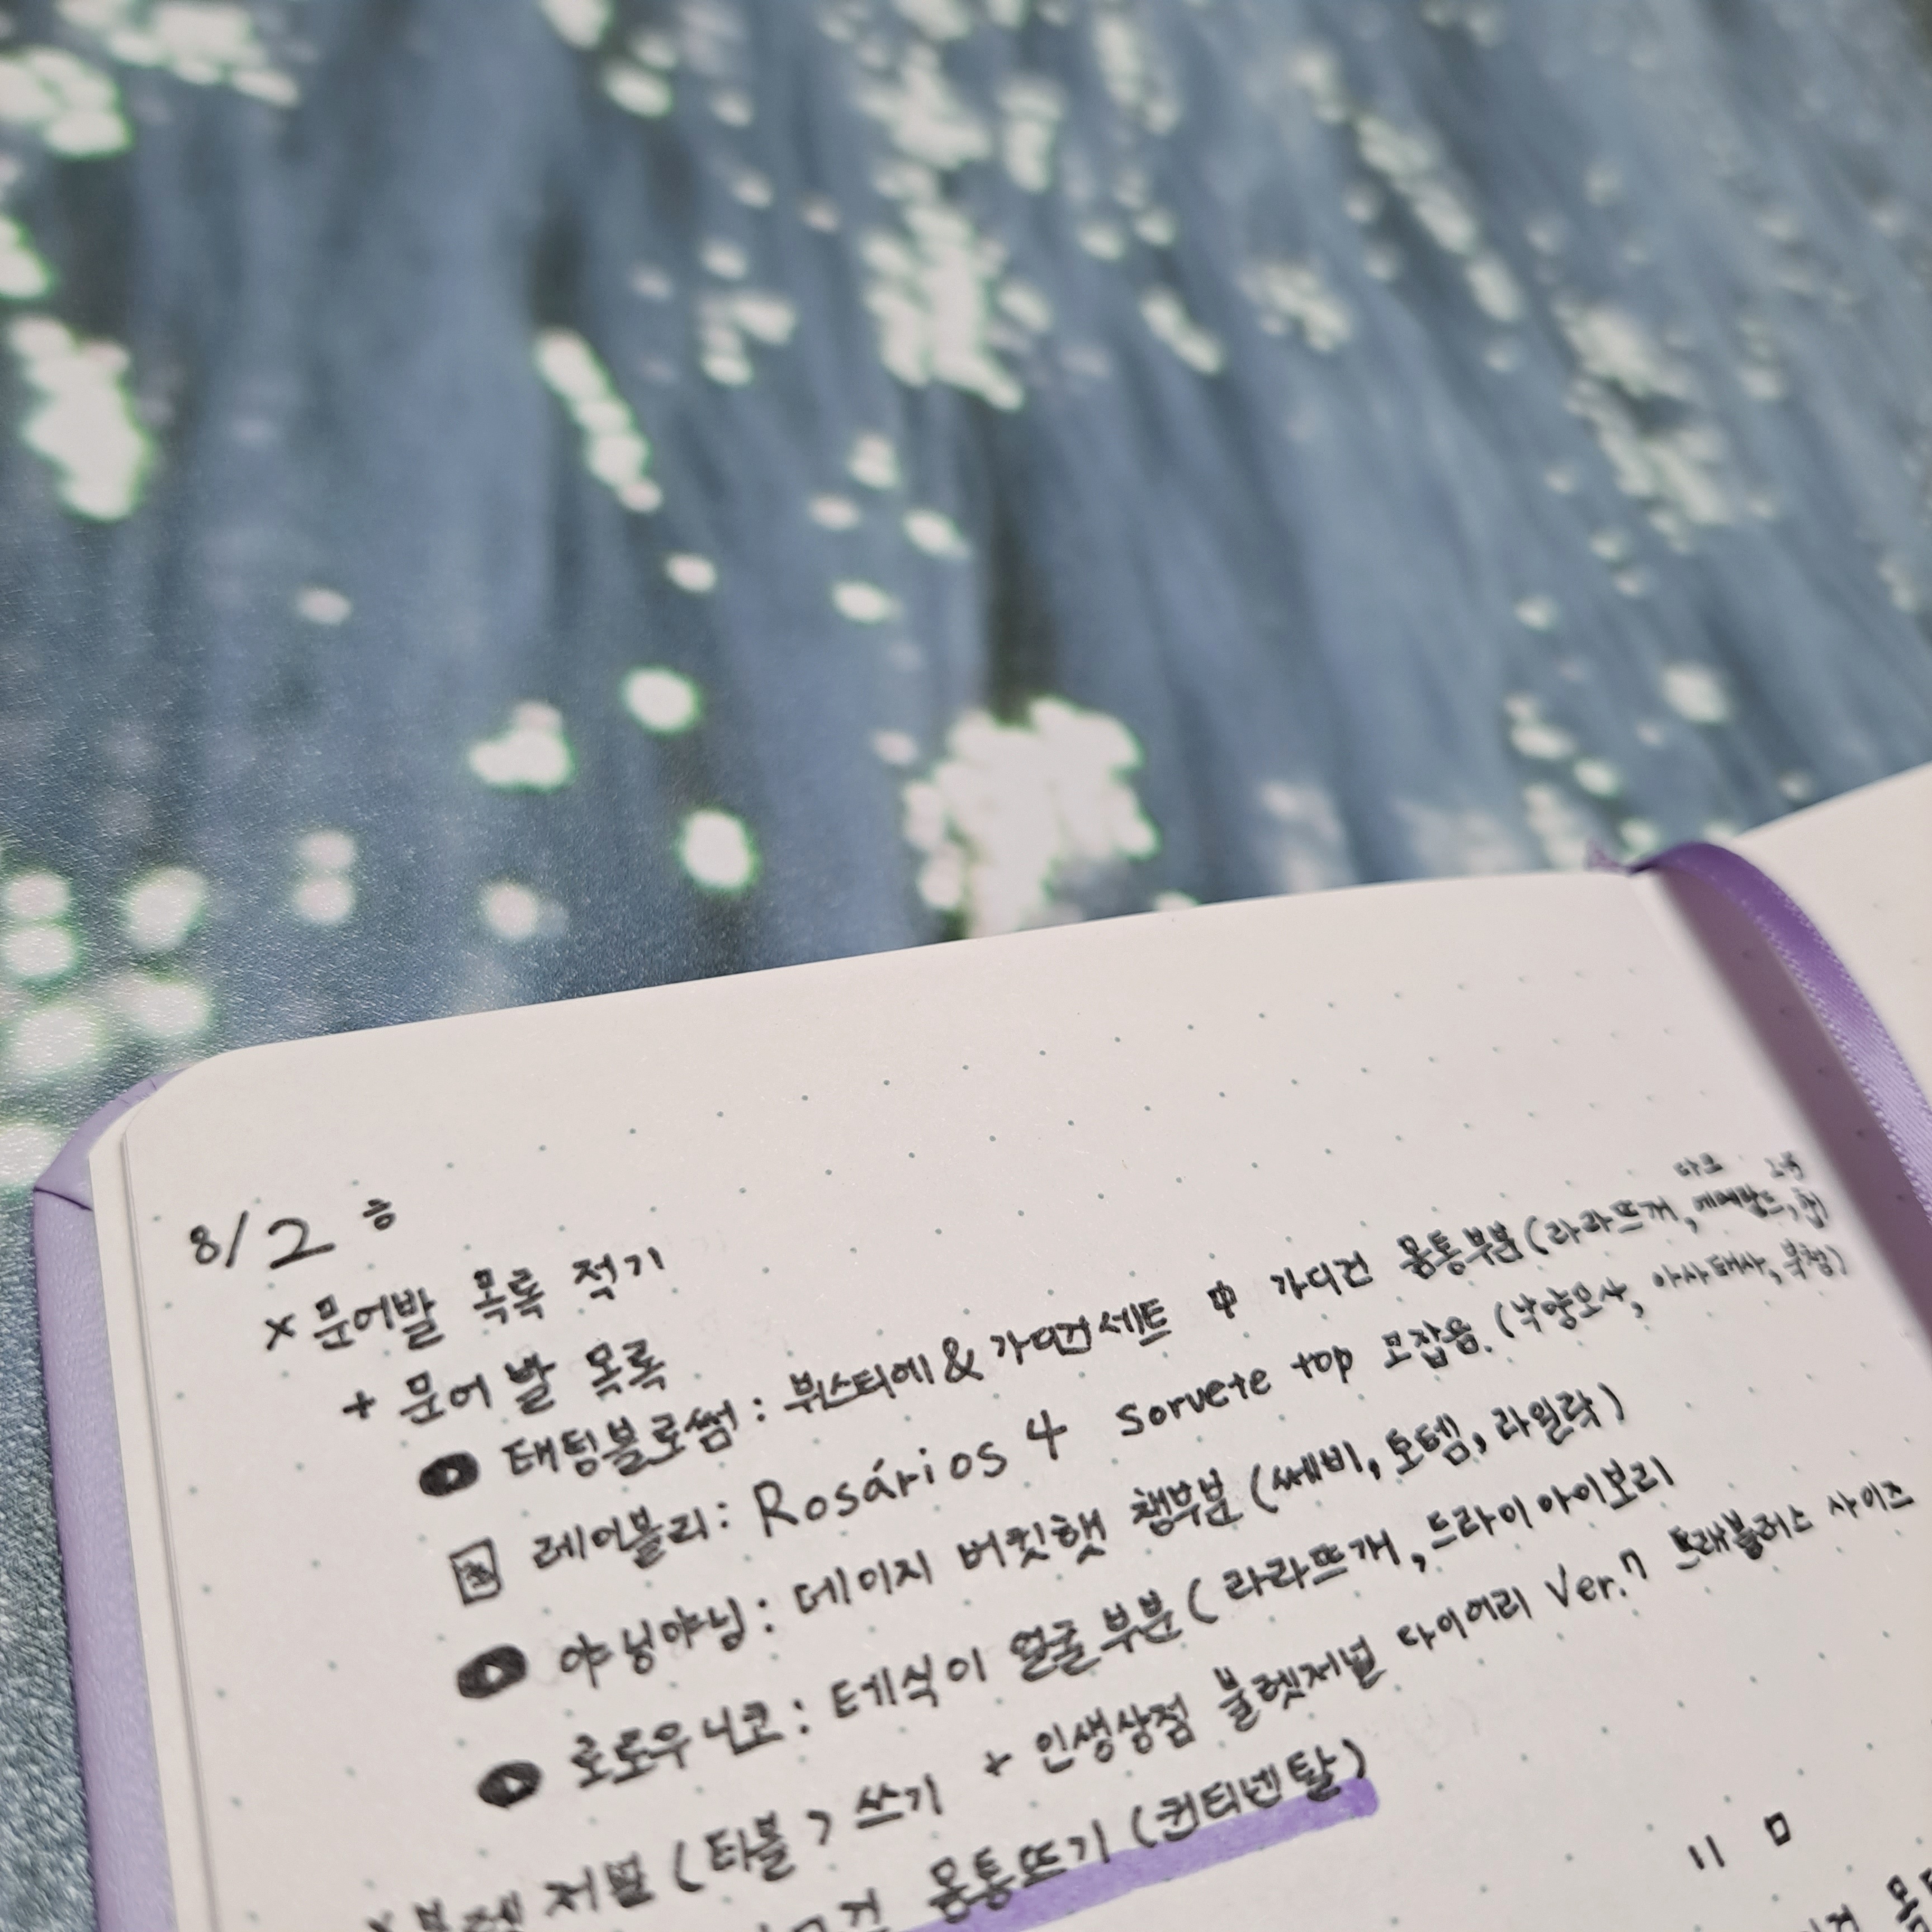 8/2 금
× 문어발 목록 적기
+ 문어발 목록
태팅블로썸: 뷔스티에 & 가디건세트 中 가디건 몸통부분 (라라뜨개,
레어블리: Rosários 4 sorvete top 코잡음. (낙양모사, 아사태사,
야닝야닝: 데이지 버킷햇 챙부분 (쎄비, 토템, 라일락)
로로우니코: 테식이 얼굴부분 (라라뜨개, 드라이아이보리
× 불렛 저널 (타블) 쓰기 + 인생상점 불렛저널 다이어리 Ver.7 트래블러스 사이즈
몸통뜨기 (컨티넨탈)